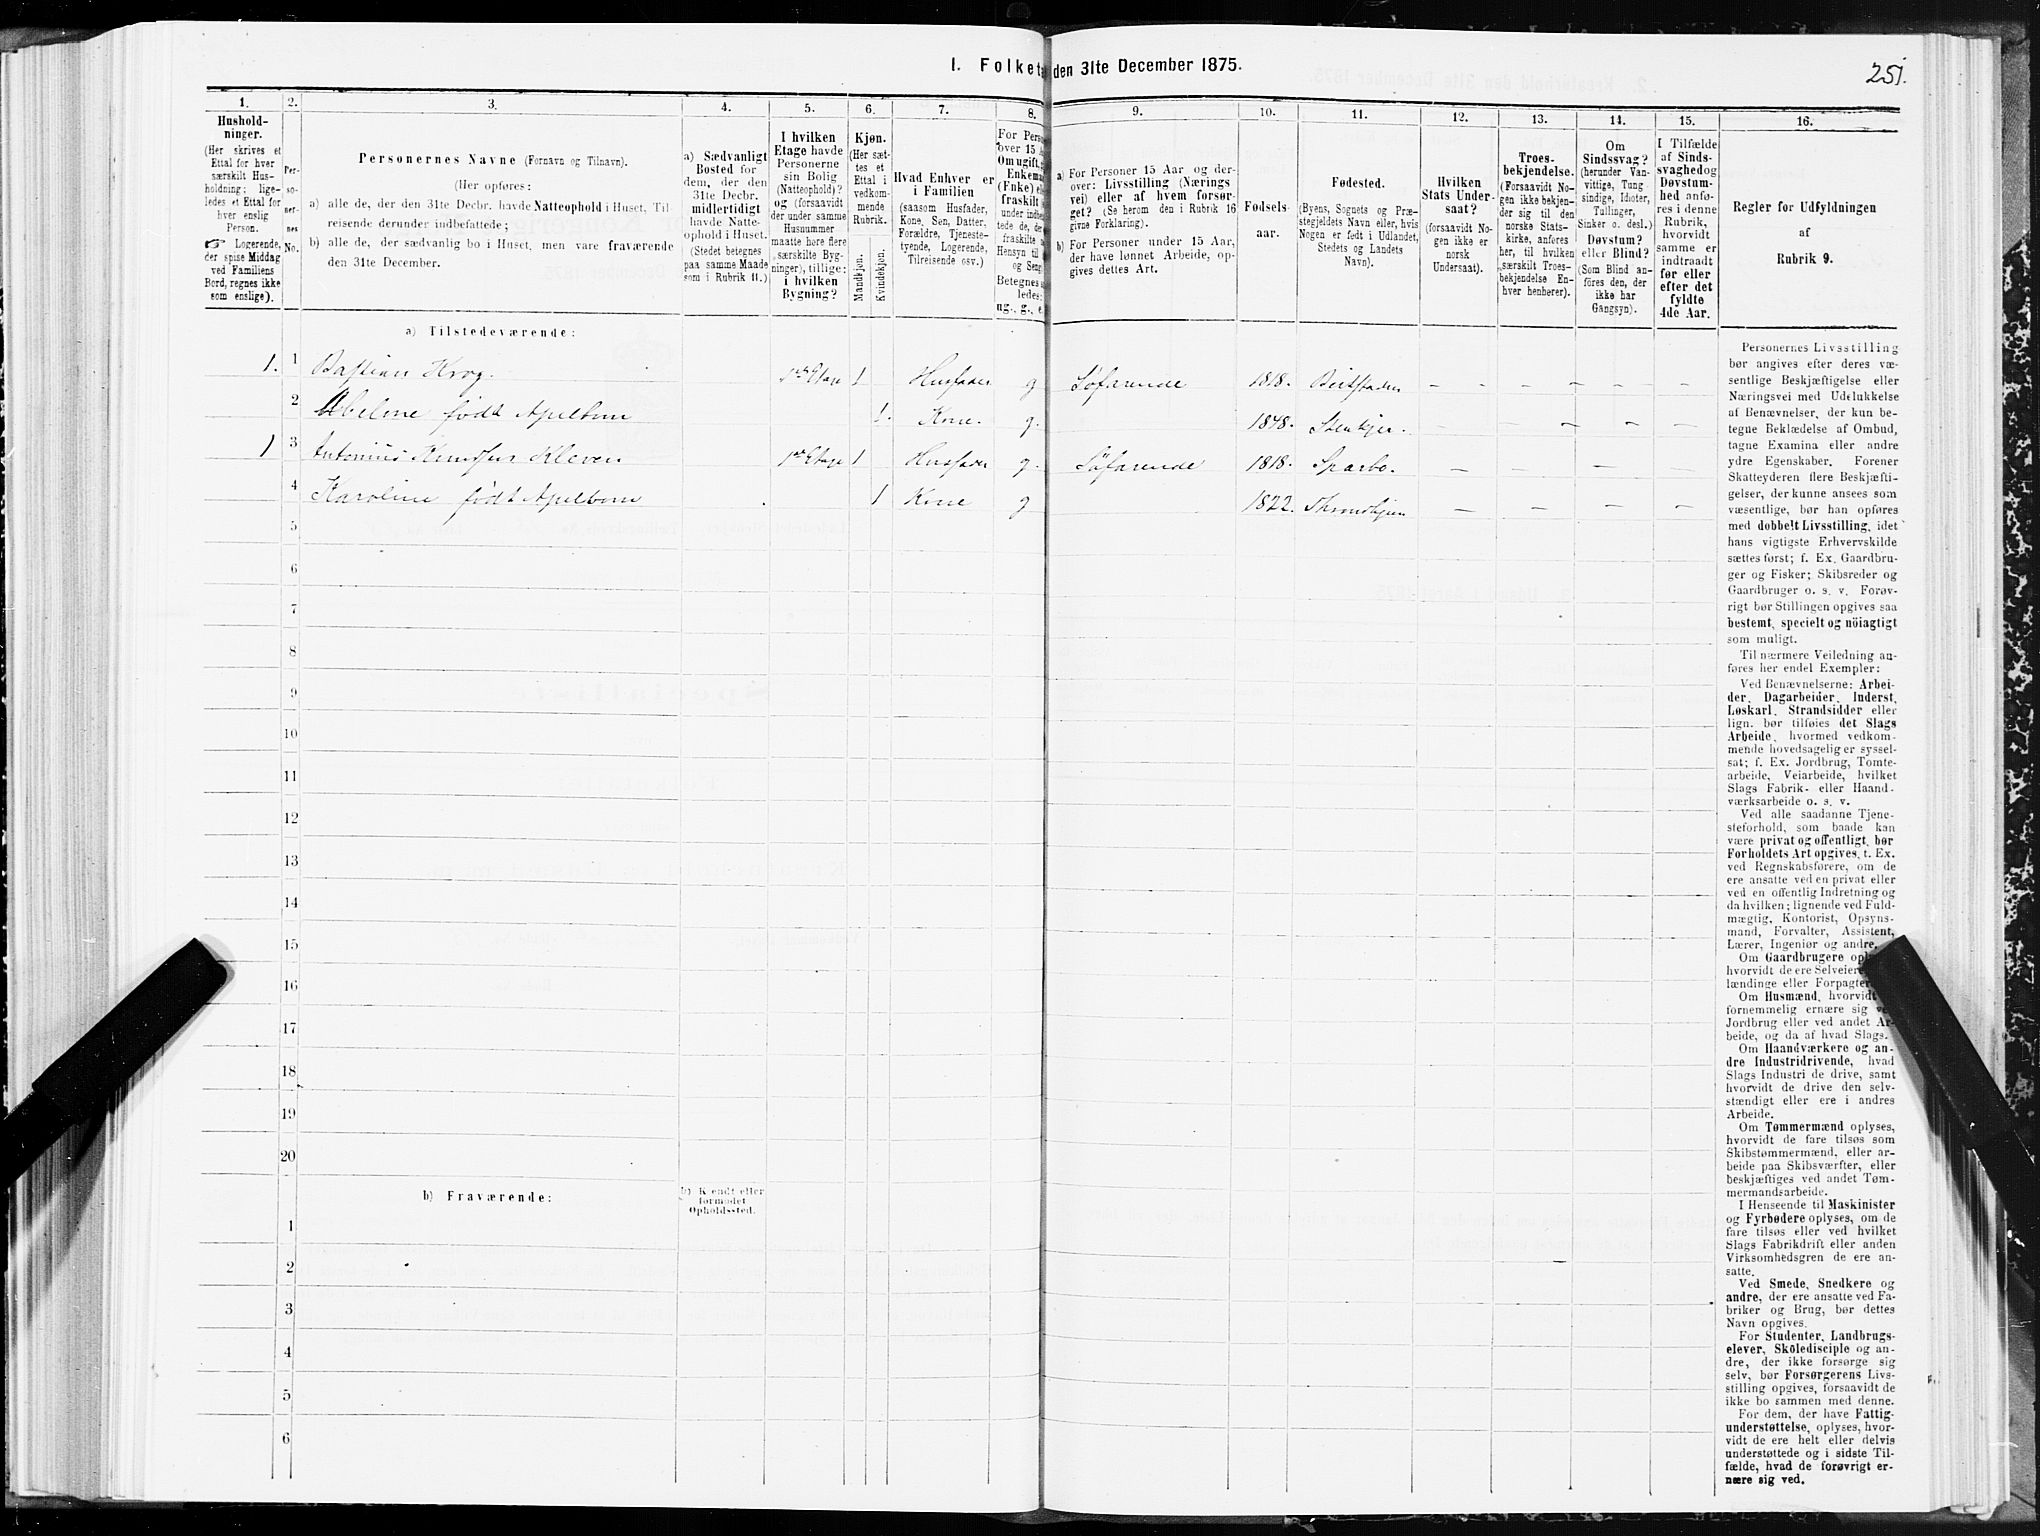 I. Folketæ den 31te December 1875.
251.
1.
Hushold-
ninger.
(Her skrives et
Ettal for hver
særskilt Hus-
holdning; lige-
ledes et Ettal for
hver enslig
Person.
☞ Logerende,
der spise Middag
ved Familiens
Bord, regnes ikke
som enslige).
2.
Per-
so-
ner-
nes
No.
3.
Personernes Navne (Fornavn og Tilnavn).
(Her opføres:
a) alle de, der den 31te Decbr. havde Natteophold i Huset, Til-
reisende derunder indbefattede;
b) alle de, der sædvanlig bo i Huset, men vare fraværende
den 31te December.
4.
a) Sædvanligt
Bosted for
dem, der den
31te Decbr.
midlertidigt
havde Natte-
ophold i Huset.
(Stedet betegnes
paa samme Maade
som i Rubrik 11.)
5.
I hvilken
Etage havde
Personerne
sin Bolig
(Natteophold)?
og (forsaavidt
der under samme
Husnummer
maatte høre flere
særskilte Byg-
ninger), tillige:
i hvilken
Bygning?
6.
Kjøn.
(Her sæt-
tes et
Ettal i
vedkom-
mende
Rubrik.
Mandkjøn.
Kvindekjøn.
7.
Hvad Enhver er
i Familien
(saasom Husfader,
Kone, Sen, Datter,
Forældre, Tjeneste-
tyende, Logerende,
Tilreisende osv.)
8.
For Perso
over 15 A
Om ugift,
Enkema
(Enke) e
fraskilt
under indbe
tede de, der
fraskilte
Hensyn til
og Seng
Betegnes s
ledes:
ug., g., e.
9.
a) For Personer 15 Aar og der-
over: Livsstilling (Nærings
vei) eller af hvem forsør-
get? (Se herom den i Rubrik 16
givne Forklaring).
b) For Personer under 15 Aar,
der have lønnet Arbeide, op-
gives dettes Art.
10.
Fødsels-
aar.
11.
Fødested.
(Byens, Sognets og Præ-
stegjeldets Navn eller, hvis
Nogen er født i Udlandet,
Stedets og Landets
Navn).
12.
Hvilken
Stats Under-
saat?
(forsaavidt No-
gen ikke er
norsk
Undersaat).
13.
Troes-
bekjendelse.
(Forsaavidt No-
gen ikke bekjen-
der sig til den
norske Stats-
kirke, anføres
her, til hvilken
særskilt Troes-
bekjendelse En-
hver henhører).
14.
Om
Sindssvag?
(herunder Van-
vittige, Tung
sindige, Idioter,
Tullinger,
Sinker o. desl.)
Døvstum?
eller Blind?
(Som Blind an-
føres den, der
ikke har
Gangsyn).
15.
I Tilfælde
af Sinds-
svaghedog
Døvstum-
hed anfø-
res i denne
Rubrik,
hvorvidt
samme er
indtraadt
før eller
efter det
fyldte
4de Aar.
16.
Regler for Udfyldningen
af
Rubrik 9.
a) Tilstedeværende:
1. 1 Bastian Krog. 1ste Etage 1 Husfader g Søfarende 1818. Beitstaden – – – –
2 Abeline født Apelbom 1. Kone. g. 1848. Stenkjer. – – – –
1 3 Antonius Knudsen Kleven 1ste Etage 1 Husfader g. Søfarende 1818. Sparbo. – – – –
4 Karoline født Apelbom 1 Kone g 1822. Throndhjem – – – –
5
6
7
8
9
10
11
12
13
14
15
16
17
18
19
20
b) Fraværende:
b) Kjendt eller
formodet
Opholdssted.
1
2
3
4
5
6
Personernes Livsstilling
bør angives efter deres væ-
sentlige Beskjæftigelse eller
Næringsvei med Udelukkelse
af Benævnelser, der kun be-
tegne Beklædelse af Ombud,
tagne Examina eller andre
ydre Egenskaber. Forener
Skatteyderen flere Beskjæfti-
gelser, der kunne ansees som
væsentlige, bør han opføres
med dobbelt Livsstilling, idet
hans vigtigste Erhvervskilde
sættes først; f. Ex. Gaardbru-
ger og Fisker; Skibsreder og
Gaardbruger o. s. v. Forøv-
rigt bør Stillingen opgives saa
bestemt, specielt og nöiagtigt
som muligt.
Til nærmere Veiledning an-
føres her endel Exempler:
Ved Benævnelserne: Arbei-
der, Dagarbeider, Inderst,
Løskarl, Strandsidder eller
lign. bør tilføies det Slags
Arbeide, hvormed vedkom-
mende hovedsagelig er syssel-
sat; f. Ex. Jordbrug, Tomte-
arbeide, Veiarbeide, hvilket
Slags Fabrik- eller Haand-
værksarbeide o. s. v.
Ved alle saadanne Tjene-
steforhold, som baade kan
være privat og offentligt, bør
Forholdets Art opgives, t. Ex.
ved Regnskabsførere, om de
ere ansatte ved en privat eller
ved en offentlig Indretning og
da hvilken; lignende ved Fuld-
mægtig, Kontorist, Opsyns-
mand, Forvalter, Assistent,
Lærer, Ingeniør og andre.
Om Gaardbrugere opl
hvorvidt de ere Selveiere
lændinge eller Forpagter
Om Husmænd, hvorvidt
fornemmelig ernære sig ve
Jordbrug eller ved andet Ar-
beide, og da af hvad Slags.
Om Haandværkere og an-
dre Industridrivende, hvad
Slags Industri de drive, samt
hvorvidt de drive den selv-
stændigt eller ere i andres
Arbeide.
Om Tømmermænd oplyses,
hvorvidt de fare tilsøs som
Skibstømmermænd, eller ar-
beide paa Skibsværfter, eller
beskjæftiges ved andet Tøm-
mermandsarbeide.
I Henseende til Maskinister
og Fyrbødere oplyses, om de
fare tilsøs eller ved hvilket
Slags Fabrikdrift eller anden
Virksomhedsgren de ere an-
satte.
Ved Smede, Snedkere og
andre, der ere ansatte ved Fa-
briker og Brug, bør dettes
Navn opgives.
For Studenter, Landbrugs-
elever, Skoledisciple og an-
dre, der ikke forsørge sig
selv, bør Forsørgerens Livs-
stilling opgives, forsaavidt de
ikke bo sammen med denne.
For dem, der have Fattig-
understøttelse, oplyses, hvor-
vidt de ere helt eller delvis
understøttede og i sidste Til-
fælde, hvad de forøvrigt er-
nære sig ved.